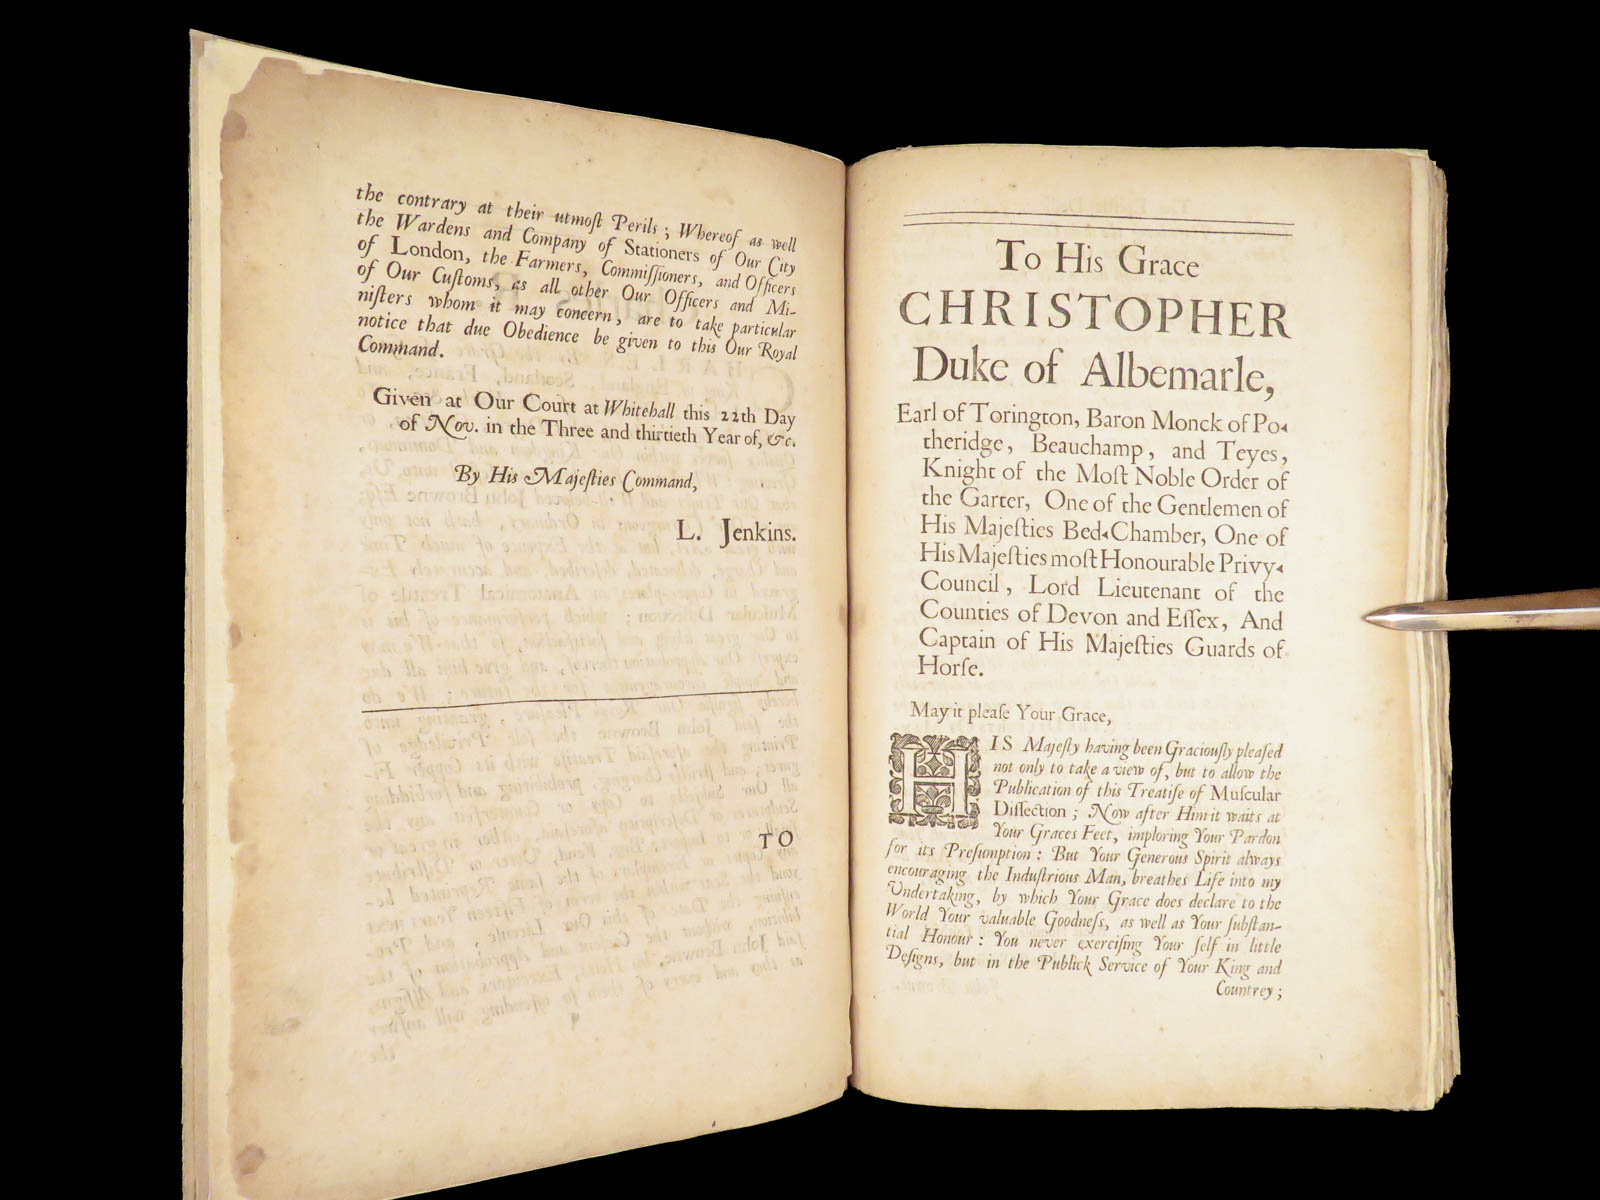 the contrary at their utmoſt Perils ; Whereof as well
the Wardens and Company of Stationers of Our City
of London, the Farmers, Commiſſioners, and Officers
of Our Cuſtoms, as all other Our Officers and Mi-
niſters whom it may concern, are to take particular
notice that due Obedience be given to this Our Royal
Command.
Given at Our Court at Whitehall this 22th Day
of Nov. in the Three and thirtieth Year of, &c.
By His Majeſties Command,
L. Jenkins.
TO
To His Grace
CHRISTOPHER
Duke of Albemarle,
Earl of Torington, Baron Monck of Po-
theridge, Beauchamp, and Teyes,
Knight of the Moſt Noble Order of
the Garter, One of the Gentlemen of
His Majeſties Bed-Chamber, One of
His Majeſties moſt Honourable Privy-
Council, Lord Lieutenant of the
Counties of Devon and Eſſex, And
Captain of His Majeſties Guards of
Horſe.
May it pleaſe Your Grace,
HIS Majeſty having been Graciouſly pleaſed
not only to take a view of, but to allow the
Publication of this Treatiſe of Muſcular
Diſſection ; Now after Him it waits at
Your Graces Feet, imploring Your Pardon
for its Preſumption : But Your Generous Spirit always
encouraging the Induſtrious Man, breathes Life into my
Undertaking, by which Your Grace does declare to the
World Your valuable Goodneſs, as well as Your ſubſtan-
tial Honour : You never exerciſing Your ſelf in little
Deſigns, but in the Publick Service of Your King and
Countrey ;